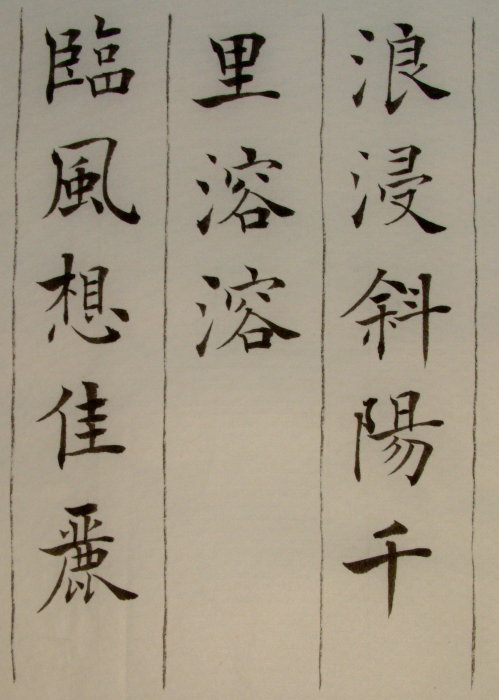 浪浸斜陽千
里溶溶
臨風想佳麗